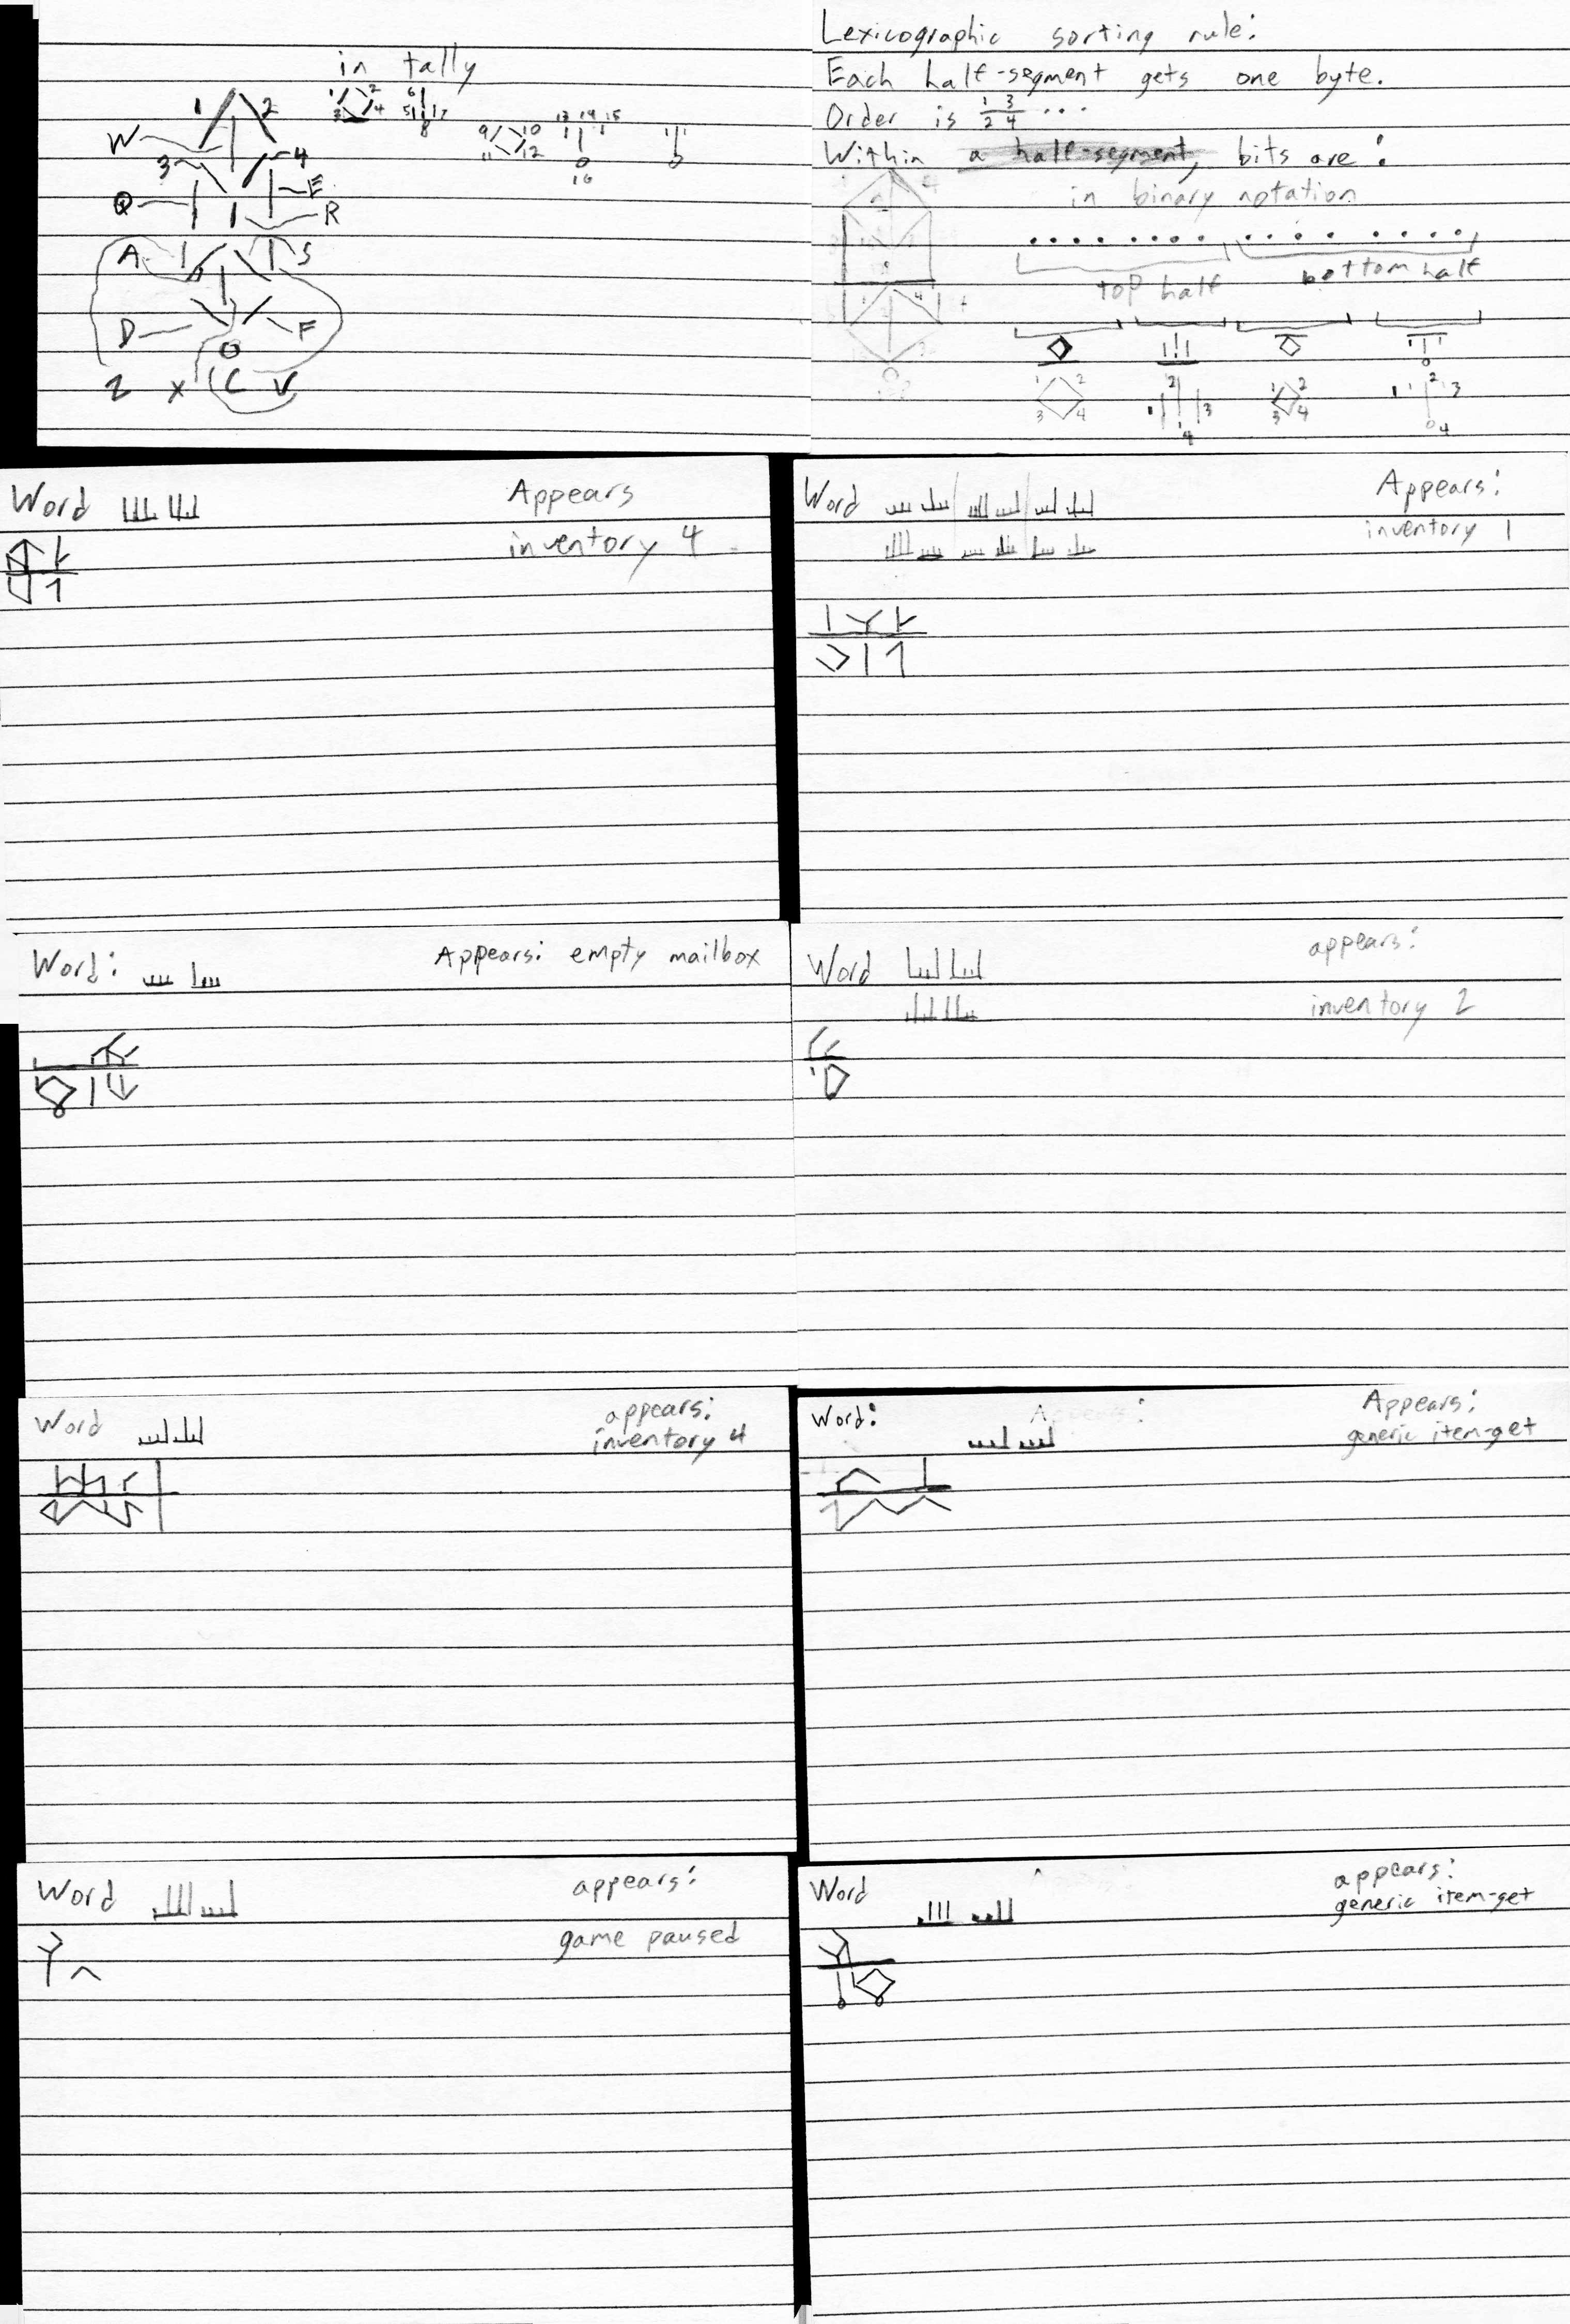 in tally
1 2 1 2 6
3 4 5 7
8
W 9 10 13 14 15
3 4 11 12
16
Q E
R
A S
D F
Z X C V
Lexicographic sorting rule:
Each half-segment gets one byte.
Order is 1 3 ...
2 4
Within a half-segment, bits are:
in binary notation
top half bottom half
1 2 2 1 2 1 2 3
3 4 1 3 3 4
4 4
Word Appears
inventory 4
Word Appears:
inventory 1
Word: Appears: empty mailbox
Word appears:
inventory 2
Word appears:
inventory 4
Word: Appears:
generic item-get
Word appears:
game paused
Word appears:
generic item-get